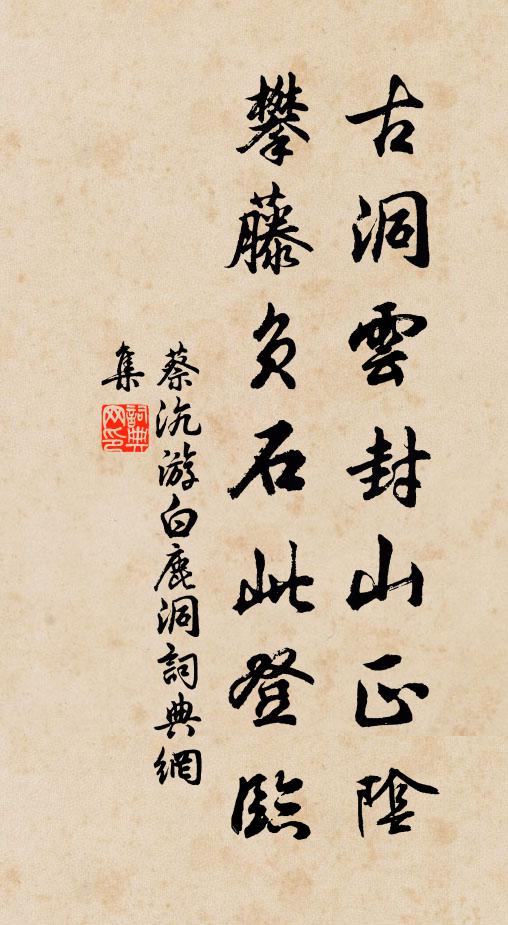 古洞雲封山正陰
攀藤負石此登臨
蔡沉游白鹿洞詞典網
集
詞典网印